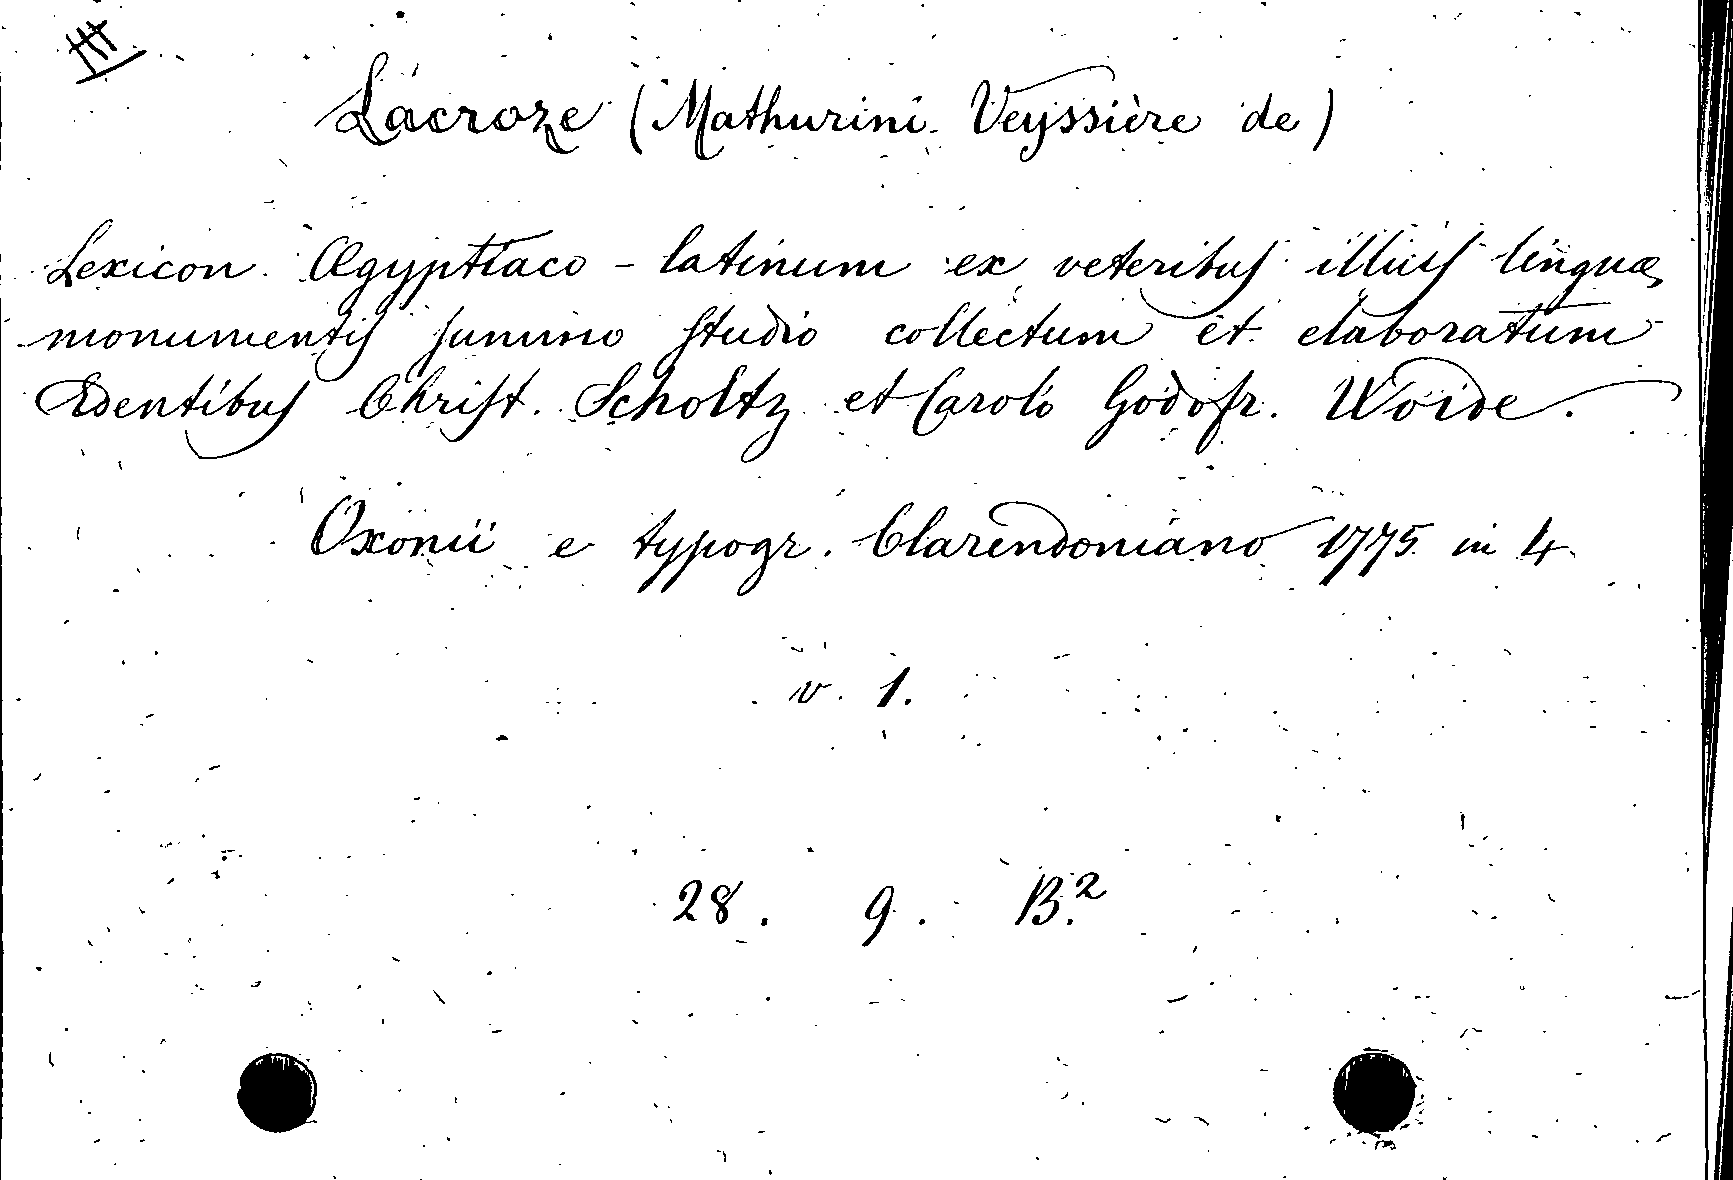 Lacroze (Mathurini Veyssière de)
Lexicon Ægyptiaco - latinum ex veteribus illius linguæ
monumentis summo studio collectum et elaboratum
Edentibus Christ. Scholtz et Carolo Godofr. Woide.
Oxonii e typogr. Clarendoniano 1775 in 4
v. 1.
28. 9. B.²